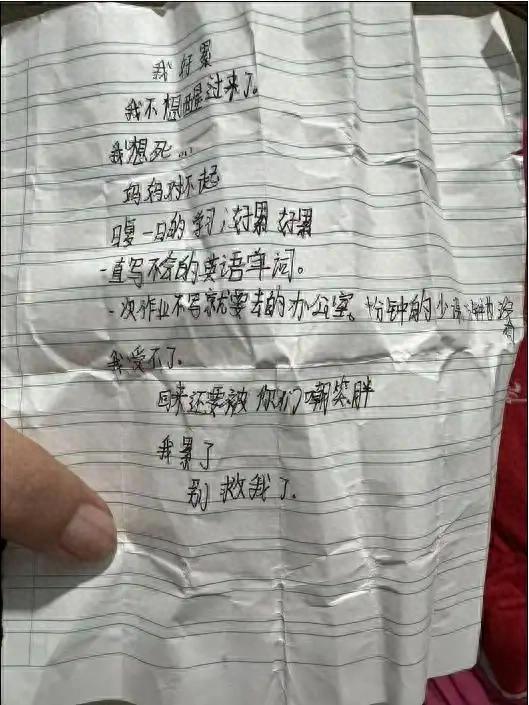 我好累
我不想醒过来了。
我想死...
妈妈对不起
日复一日的学习,好累 好累
一直写不会的英语单词。
一次作业不写就要去的办公室。十分钟的
我受不了.
回来还要被你们嘲笑胖
我累了
别救我了.